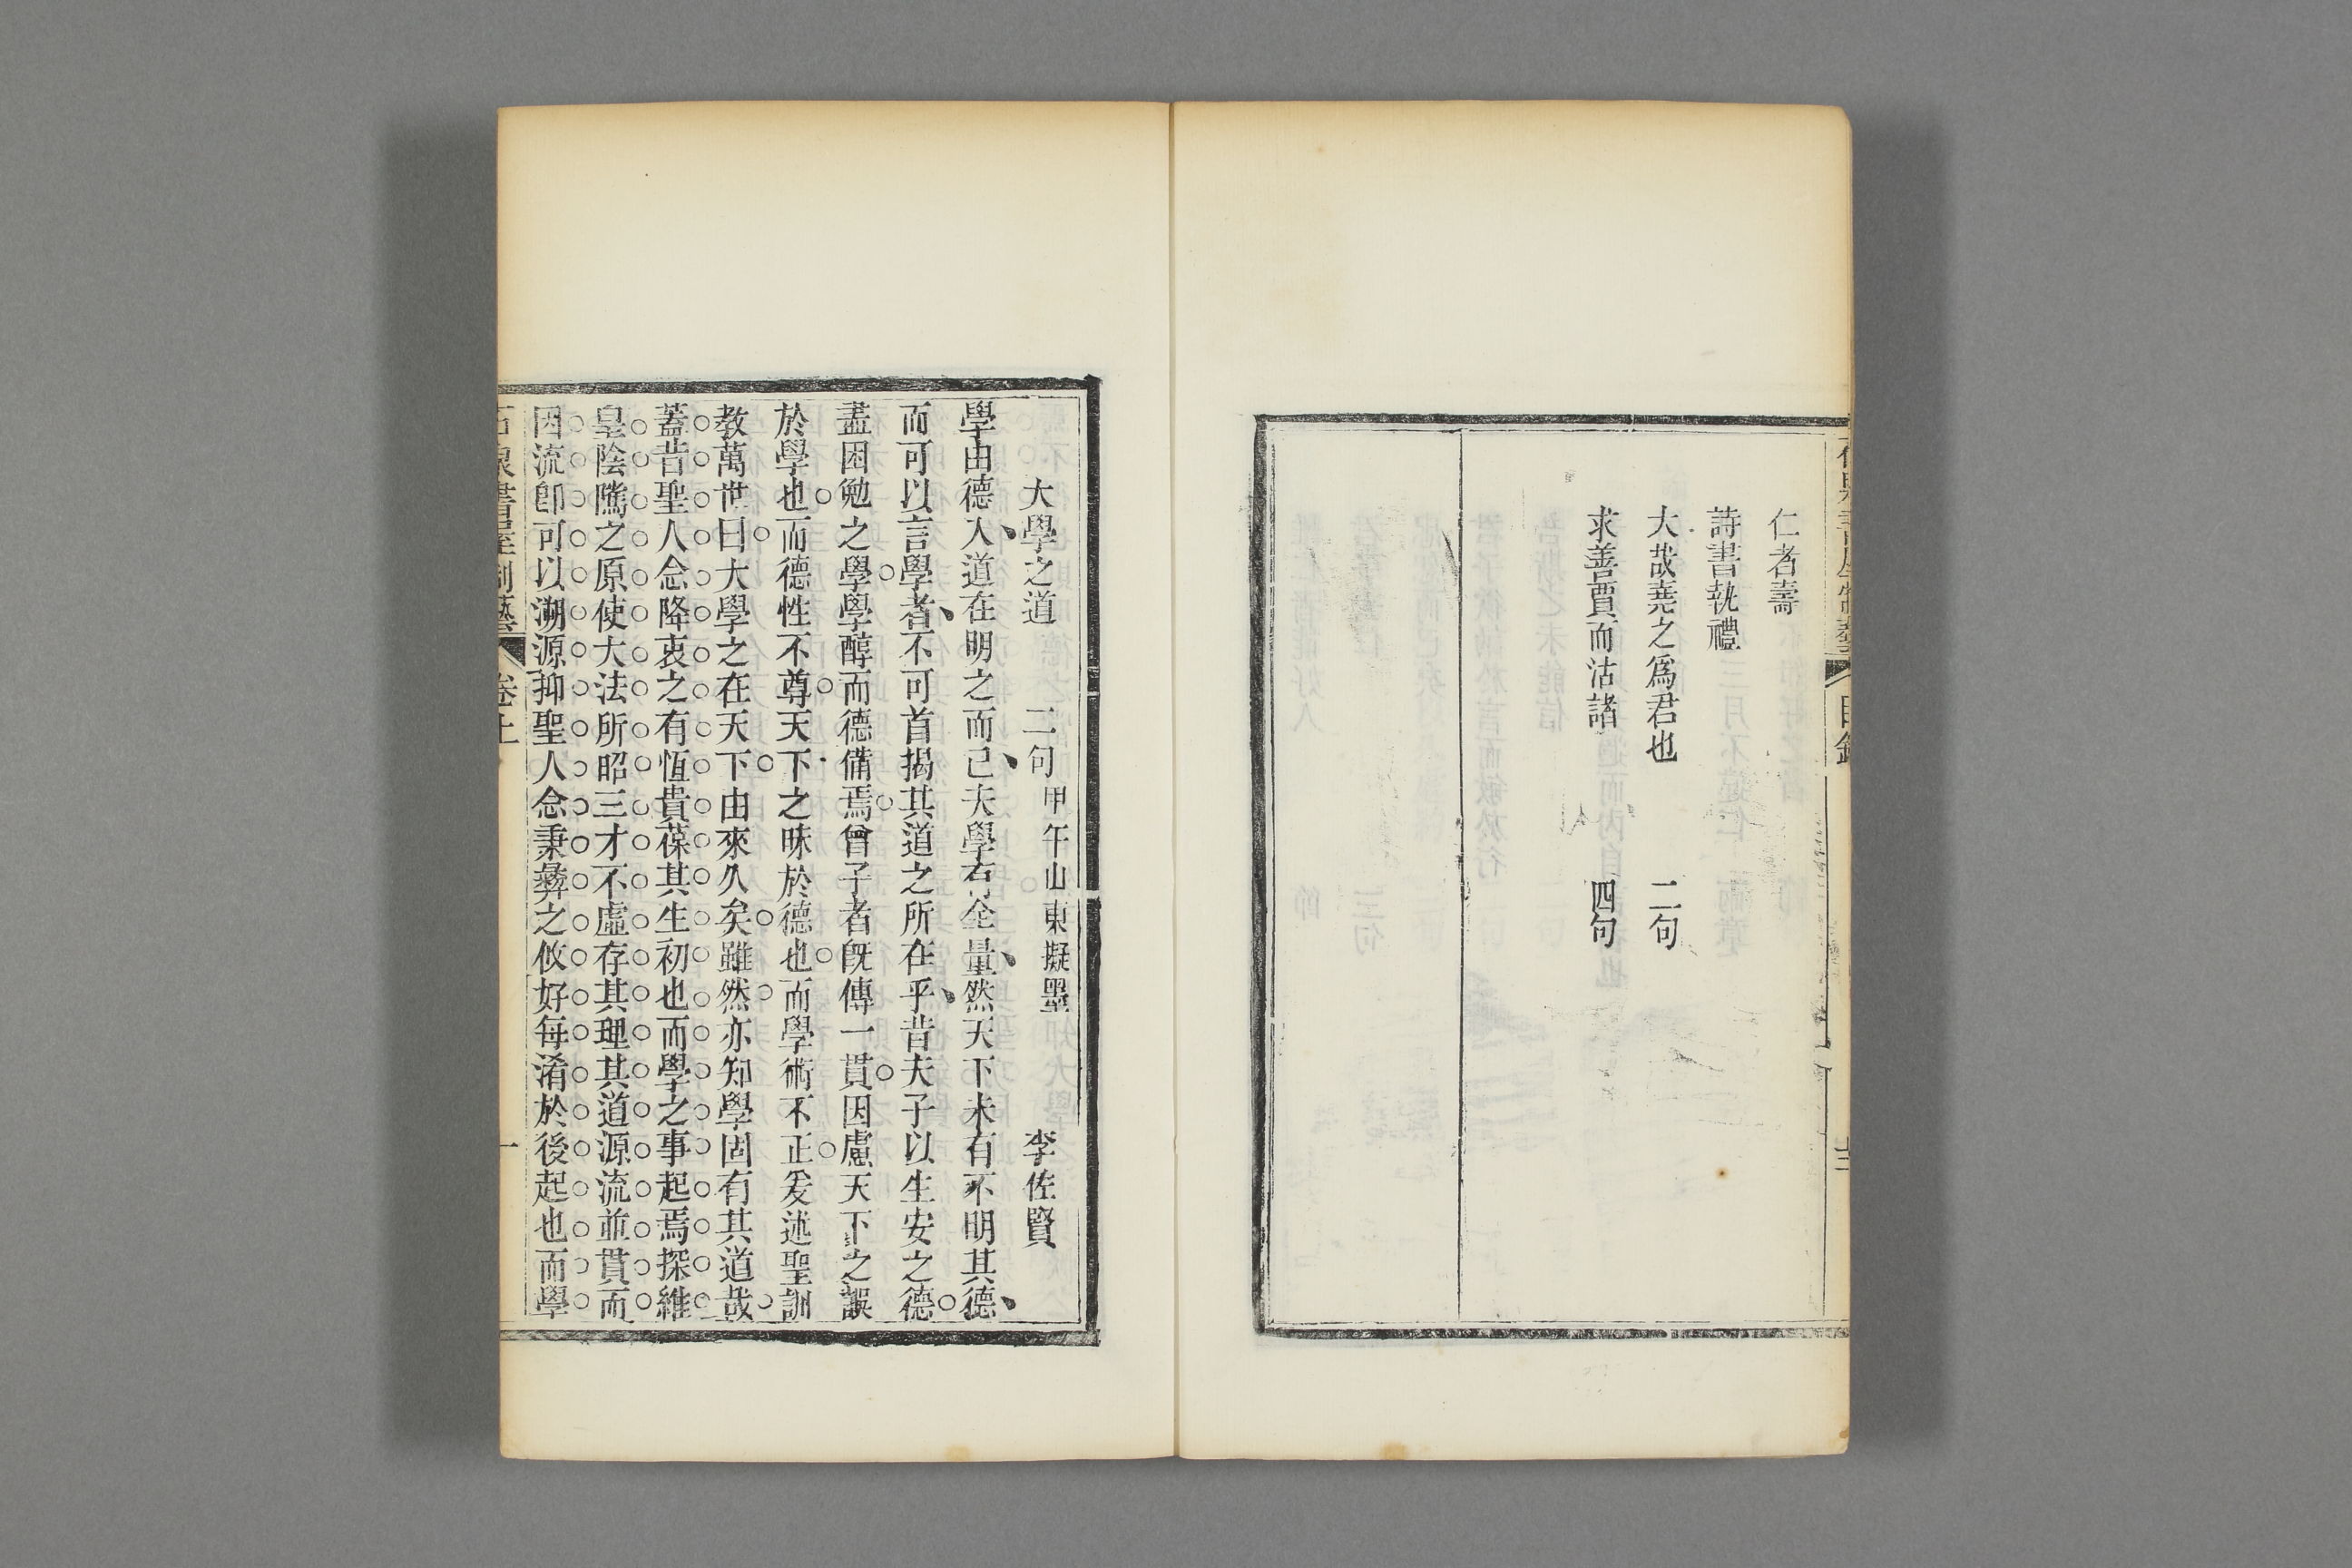 仁者壽
詩書執禮
大哉堯之爲君也　二句
求善賈而沽諸　四句
大學之道　二句　甲午山東擬墨　李佐賢
學由德入道在明之而已夫學有全量然天下未有不明其德
而可以言學者不可首揭其道之所在乎昔夫子以生安之德
盡困勉之學學醇而德備焉曾子者旣傳一貫因慮天下之誤
於學也而德性不尊天下之昧於德也而學術不正爰述聖訓
教萬世曰大學之在天下由來久矣雖然亦知學固有其道哉
蓋昔聖人念降衷之有恆貴葆其生初也而學之事起焉探維
皇陰隲之原使大法所昭三才不虛存其理其道源流並貫而
因流卽可以溯源抑聖人念秉彝之攸好每淆於後起也而學
石泉書屋制藝　卷上　一